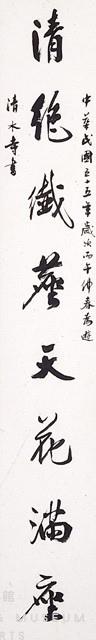 中華民國五十五年歲次丙午仲春遊
清絕纖塵天花滿座
清水寺書
館
MUSEUM